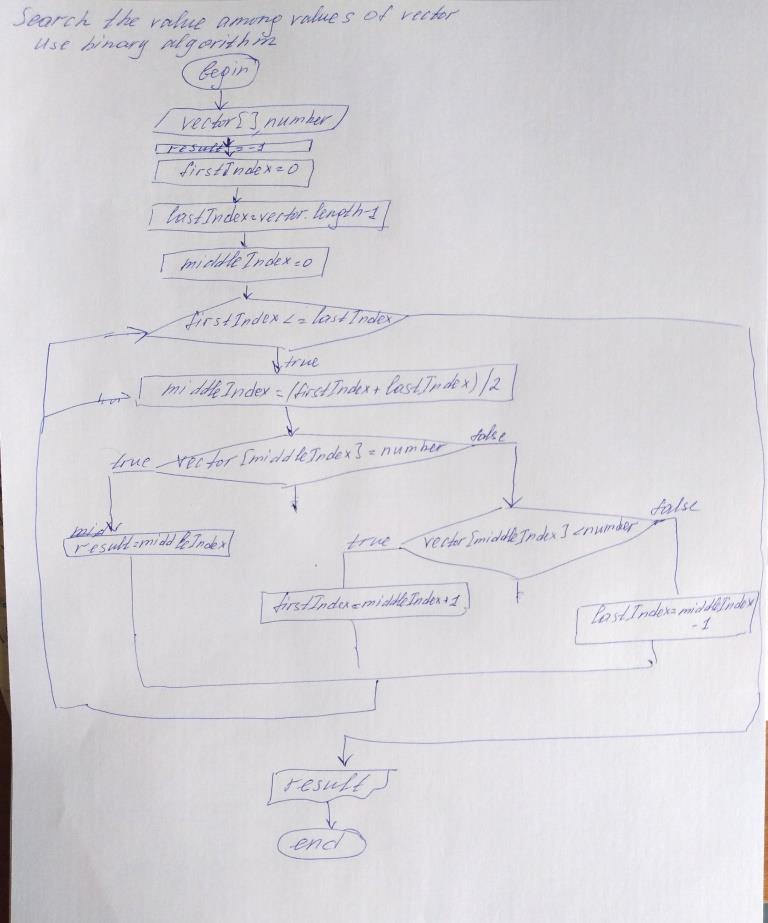 Search the value among values of vector
Use binary algorithm
begin
vector[], number
result = -1
firstIndex=0
lastIndex=vector.length-1
middleIndex=0
firstIndex<=lastIndex
true
middleIndex=(firstIndex+lastIndex)/2
true vector[middleIndex]=number false
result=middleIndex
true vector[middleIndex]<number false
firstIndex=middleIndex+1
lastIndex=middleIndex
-1
result
end